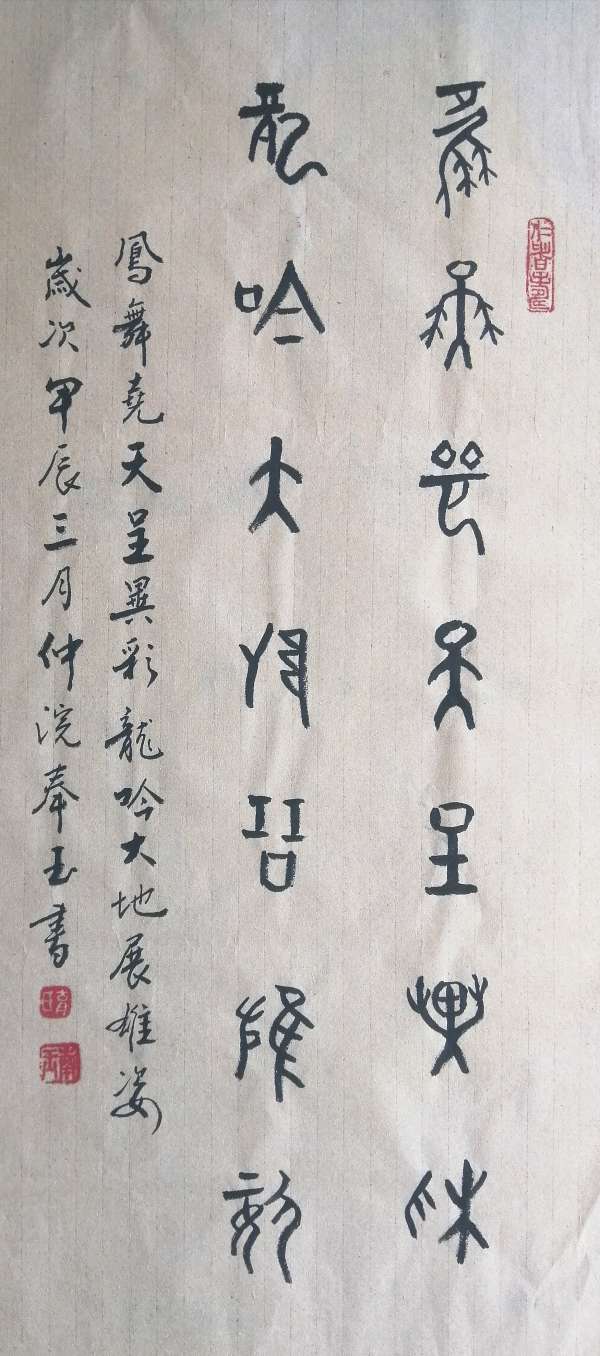 鳳舞堯天呈異彩
龍吟大地展雄姿
鳳舞堯天呈異彩龍吟大地展雄姿
歲次甲辰三月仲浣奉玉書